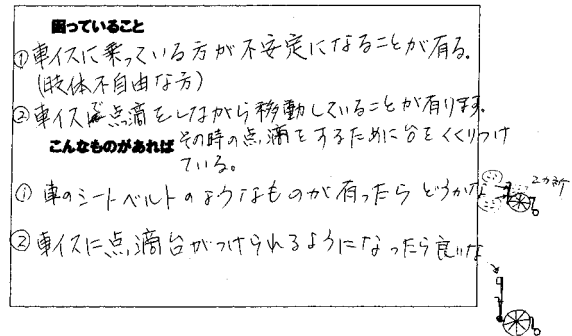 困っていること
①車イスに乗っている方が不安定になることが有る。
(肢体不自由な方)
②車イスで点滴をしながら移動していることが有ります。
その時の点滴をするために台をくくりつけ
ている。
こんなものがあれば
①車のシートベルトのようなものが有ったらどうかな
2カ所
②車イスに点滴台がつけられるようになったら良いな